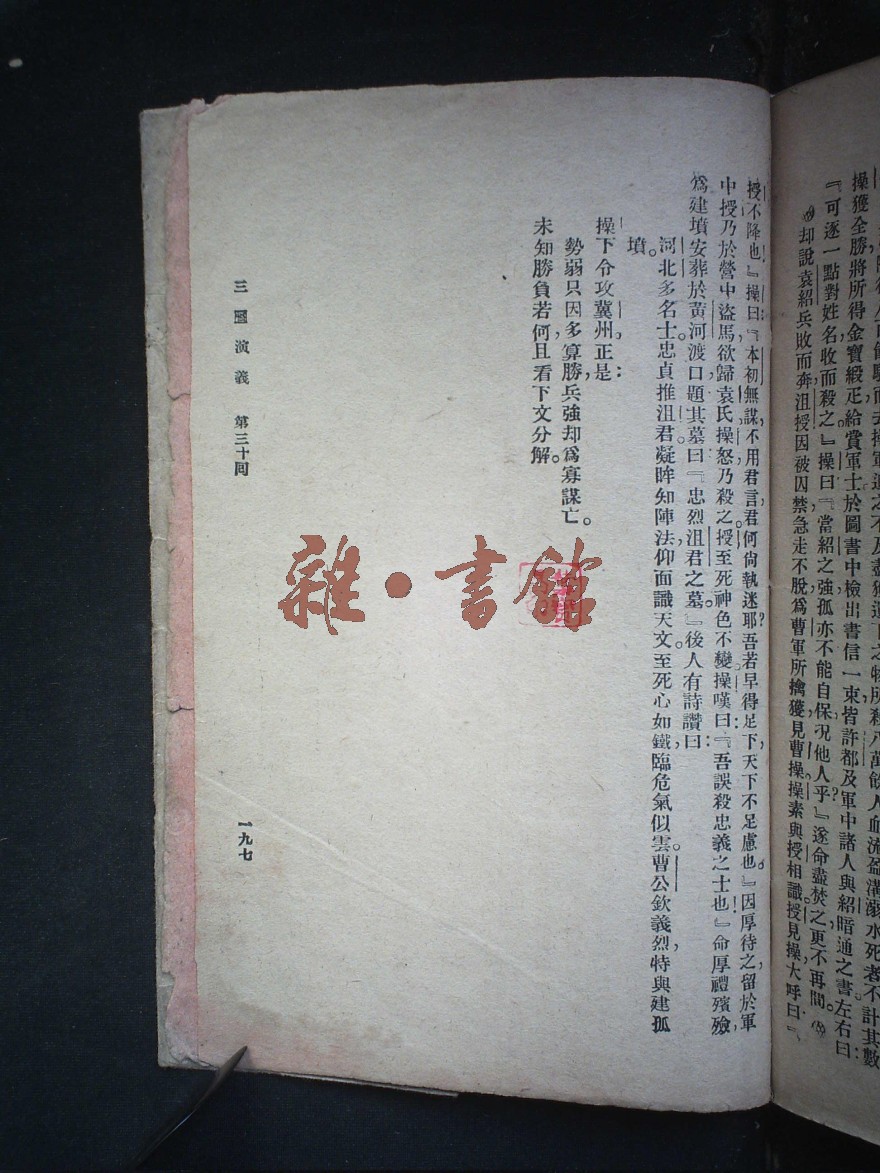 操獲全勝將所得金寶緞疋給賞軍士於圖書中檢出書信一束皆許都及軍中諸人與紹暗通之書左右曰：
『可逐一點對姓名收而殺之』操曰『當紹之強孤亦不能自保况他人乎？』遂命盡焚之更不再問。
却說袁紹兵敗而奔沮授因被囚禁急走不脫爲曹軍所擒獲見曹操操素與授相識授見操大呼曰：『
授不降也！』操曰：『本初無謀，不用君言君何尙執迷耶？吾若早得足下，天下不足慮也。』因厚待之，留於軍
中授乃於營中盜馬欲歸袁氏操怒乃殺之。授至死神色不變。操嘆曰：『吾誤殺忠義之士也！』命厚禮殯殮，
爲建墳安葬於黃河渡口題其墓曰：『忠烈沮君之墓。』後人有詩讚曰：
河北多名士。忠貞推沮君。凝眸知陣法，仰面識天文。至死心如鐵，臨危氣似雲。曹公欽義烈，特與建孤
墳。
操下令攻冀州。正是：
勢弱只因多算勝，兵強却爲寡謀亡。
未知勝負若何，且看下文分解。
三國演義 第三十回
一九七
雜·書館